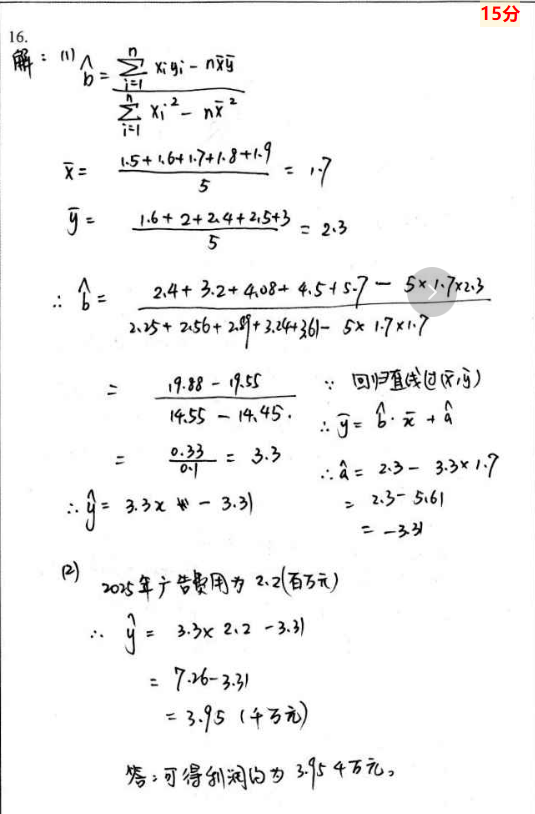 15分
16.
解：(1) b̂ = (∑_{i=1}^{n} xᵢyᵢ − n x̄ȳ) / (∑_{i=1}^{n} xᵢ² − n x̄²)
x̄ = (1.5+1.6+1.7+1.8+1.9) / 5 = 1.7
ȳ = (1.6+2+2.4+2.5+3) / 5 = 2.3
∴ b̂ = (2.4+3.2+4.08+4.5+5.7 − 5×1.7×2.3) / (2.25+2.56+2.89+3.24+3.61 − 5×1.7×1.7)
= (19.88 − 19.55) / (14.55 − 14.45)
= 0.33 / 0.1 = 3.3
∴ ŷ = 3.3x − 3.31
∵ 回归直线过(x̄,ȳ)
∴ ȳ = b̂·x̄ + â
∴ â = 2.3 − 3.3×1.7
= 2.3 − 5.61
= −3.31
(2)
2025年广告费用为 2.2(百万元)
∴ ŷ = 3.3×2.2 − 3.31
= 7.26−3.31
= 3.95 (千万元)
答：可得利润约为 3.95 千万元。